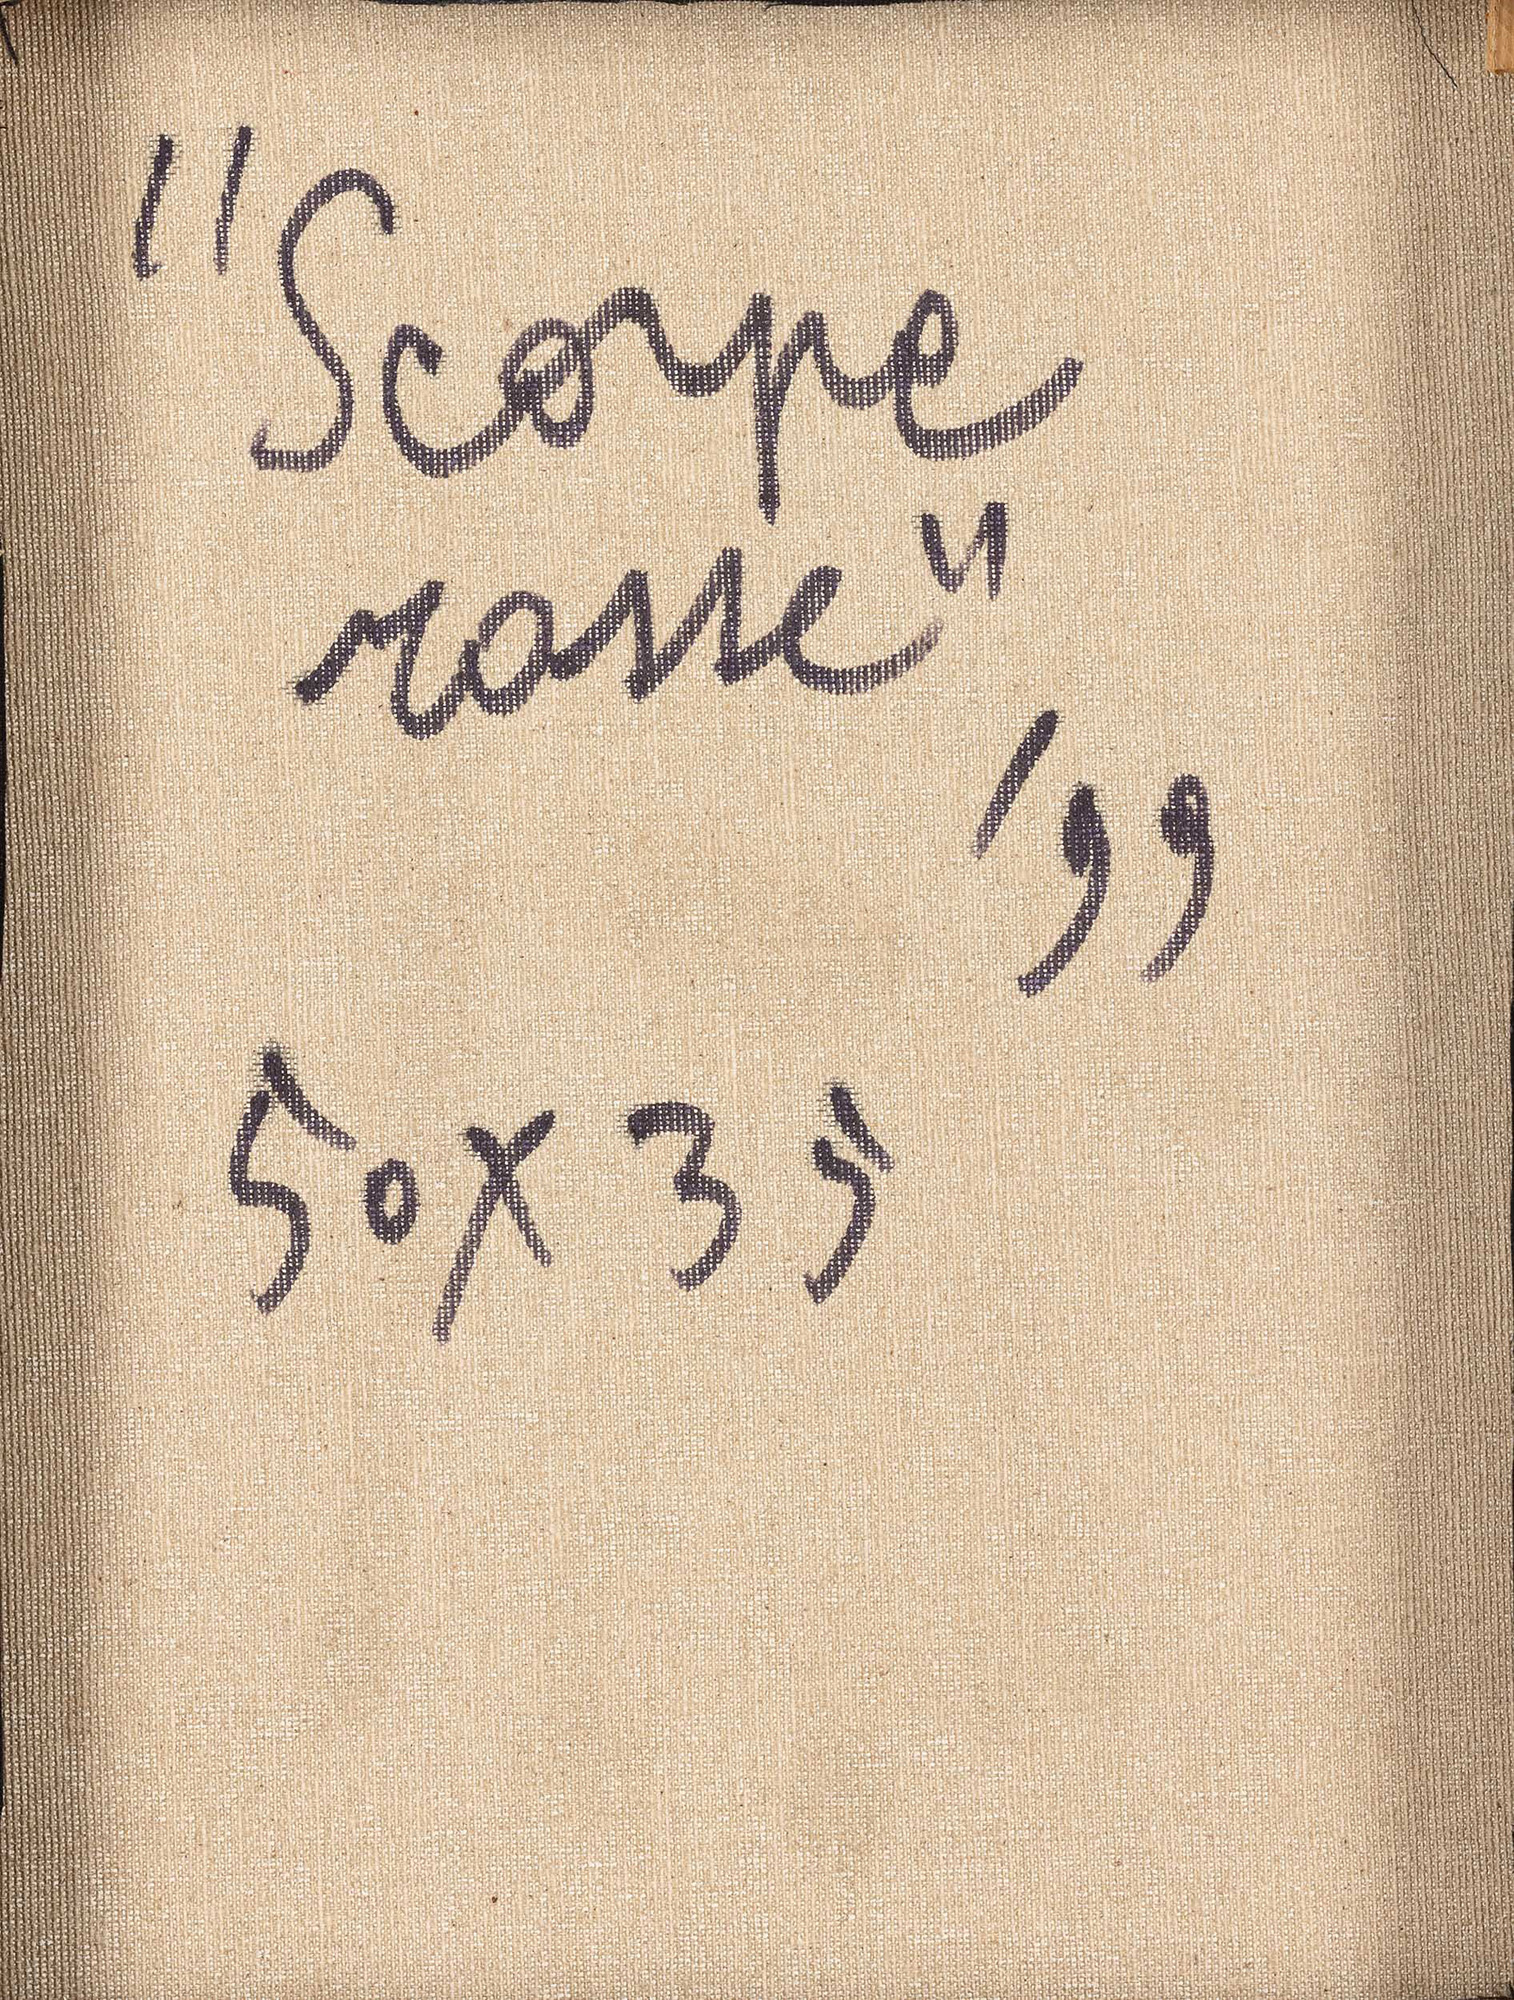 "Scarpe
rosse"
'99
50x35